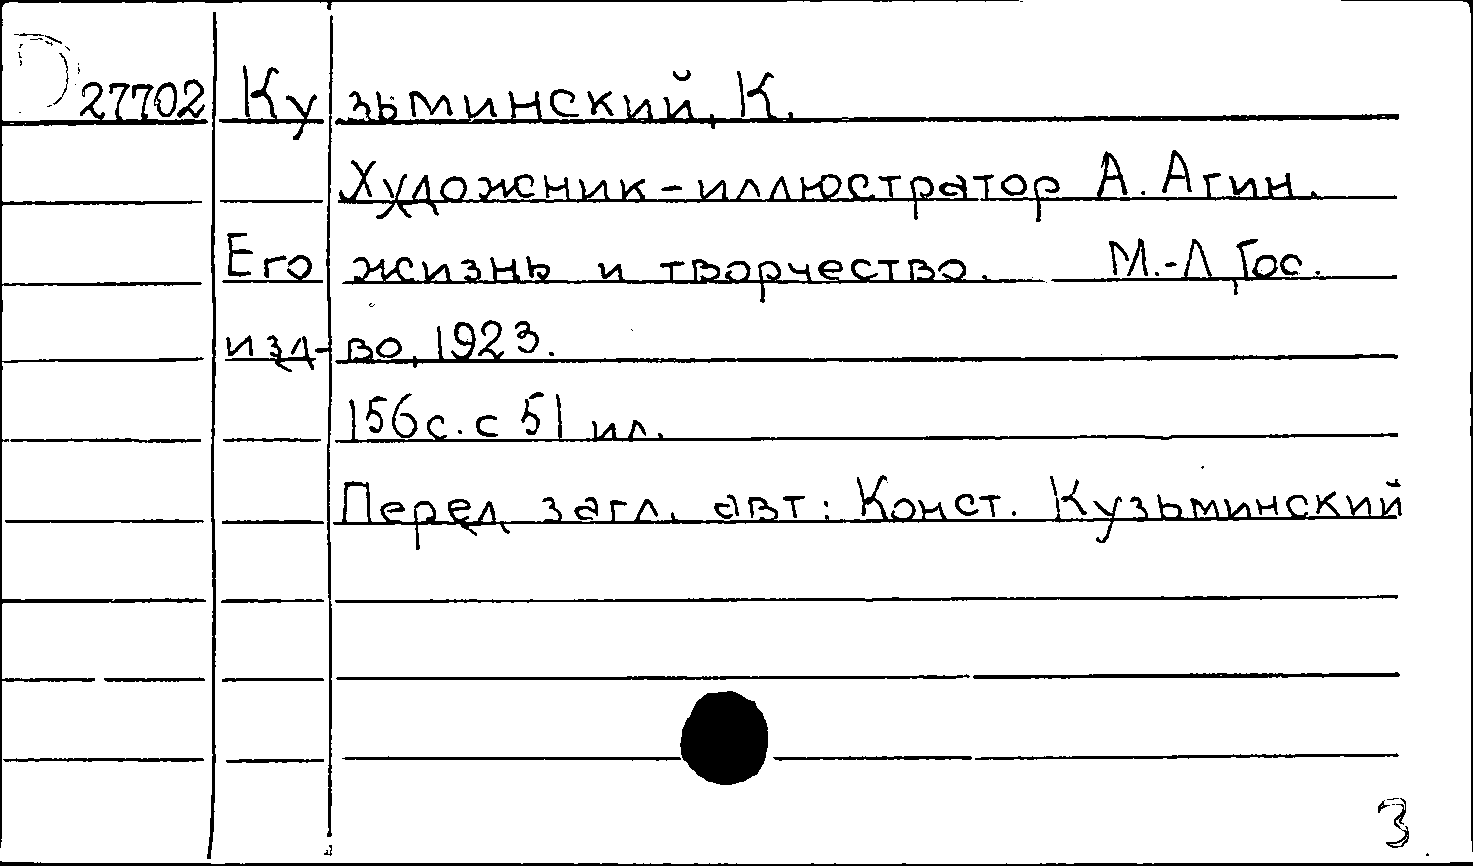 D 27702 Кузьминский, К.
Художник-иллюстратор А. Агин.
Его жизнь и творчество. М.-Л, Гос.
изд-во, 1923.
156 с. с 51 ил.
Перед загл. авт: Конст. Кузьминский
3